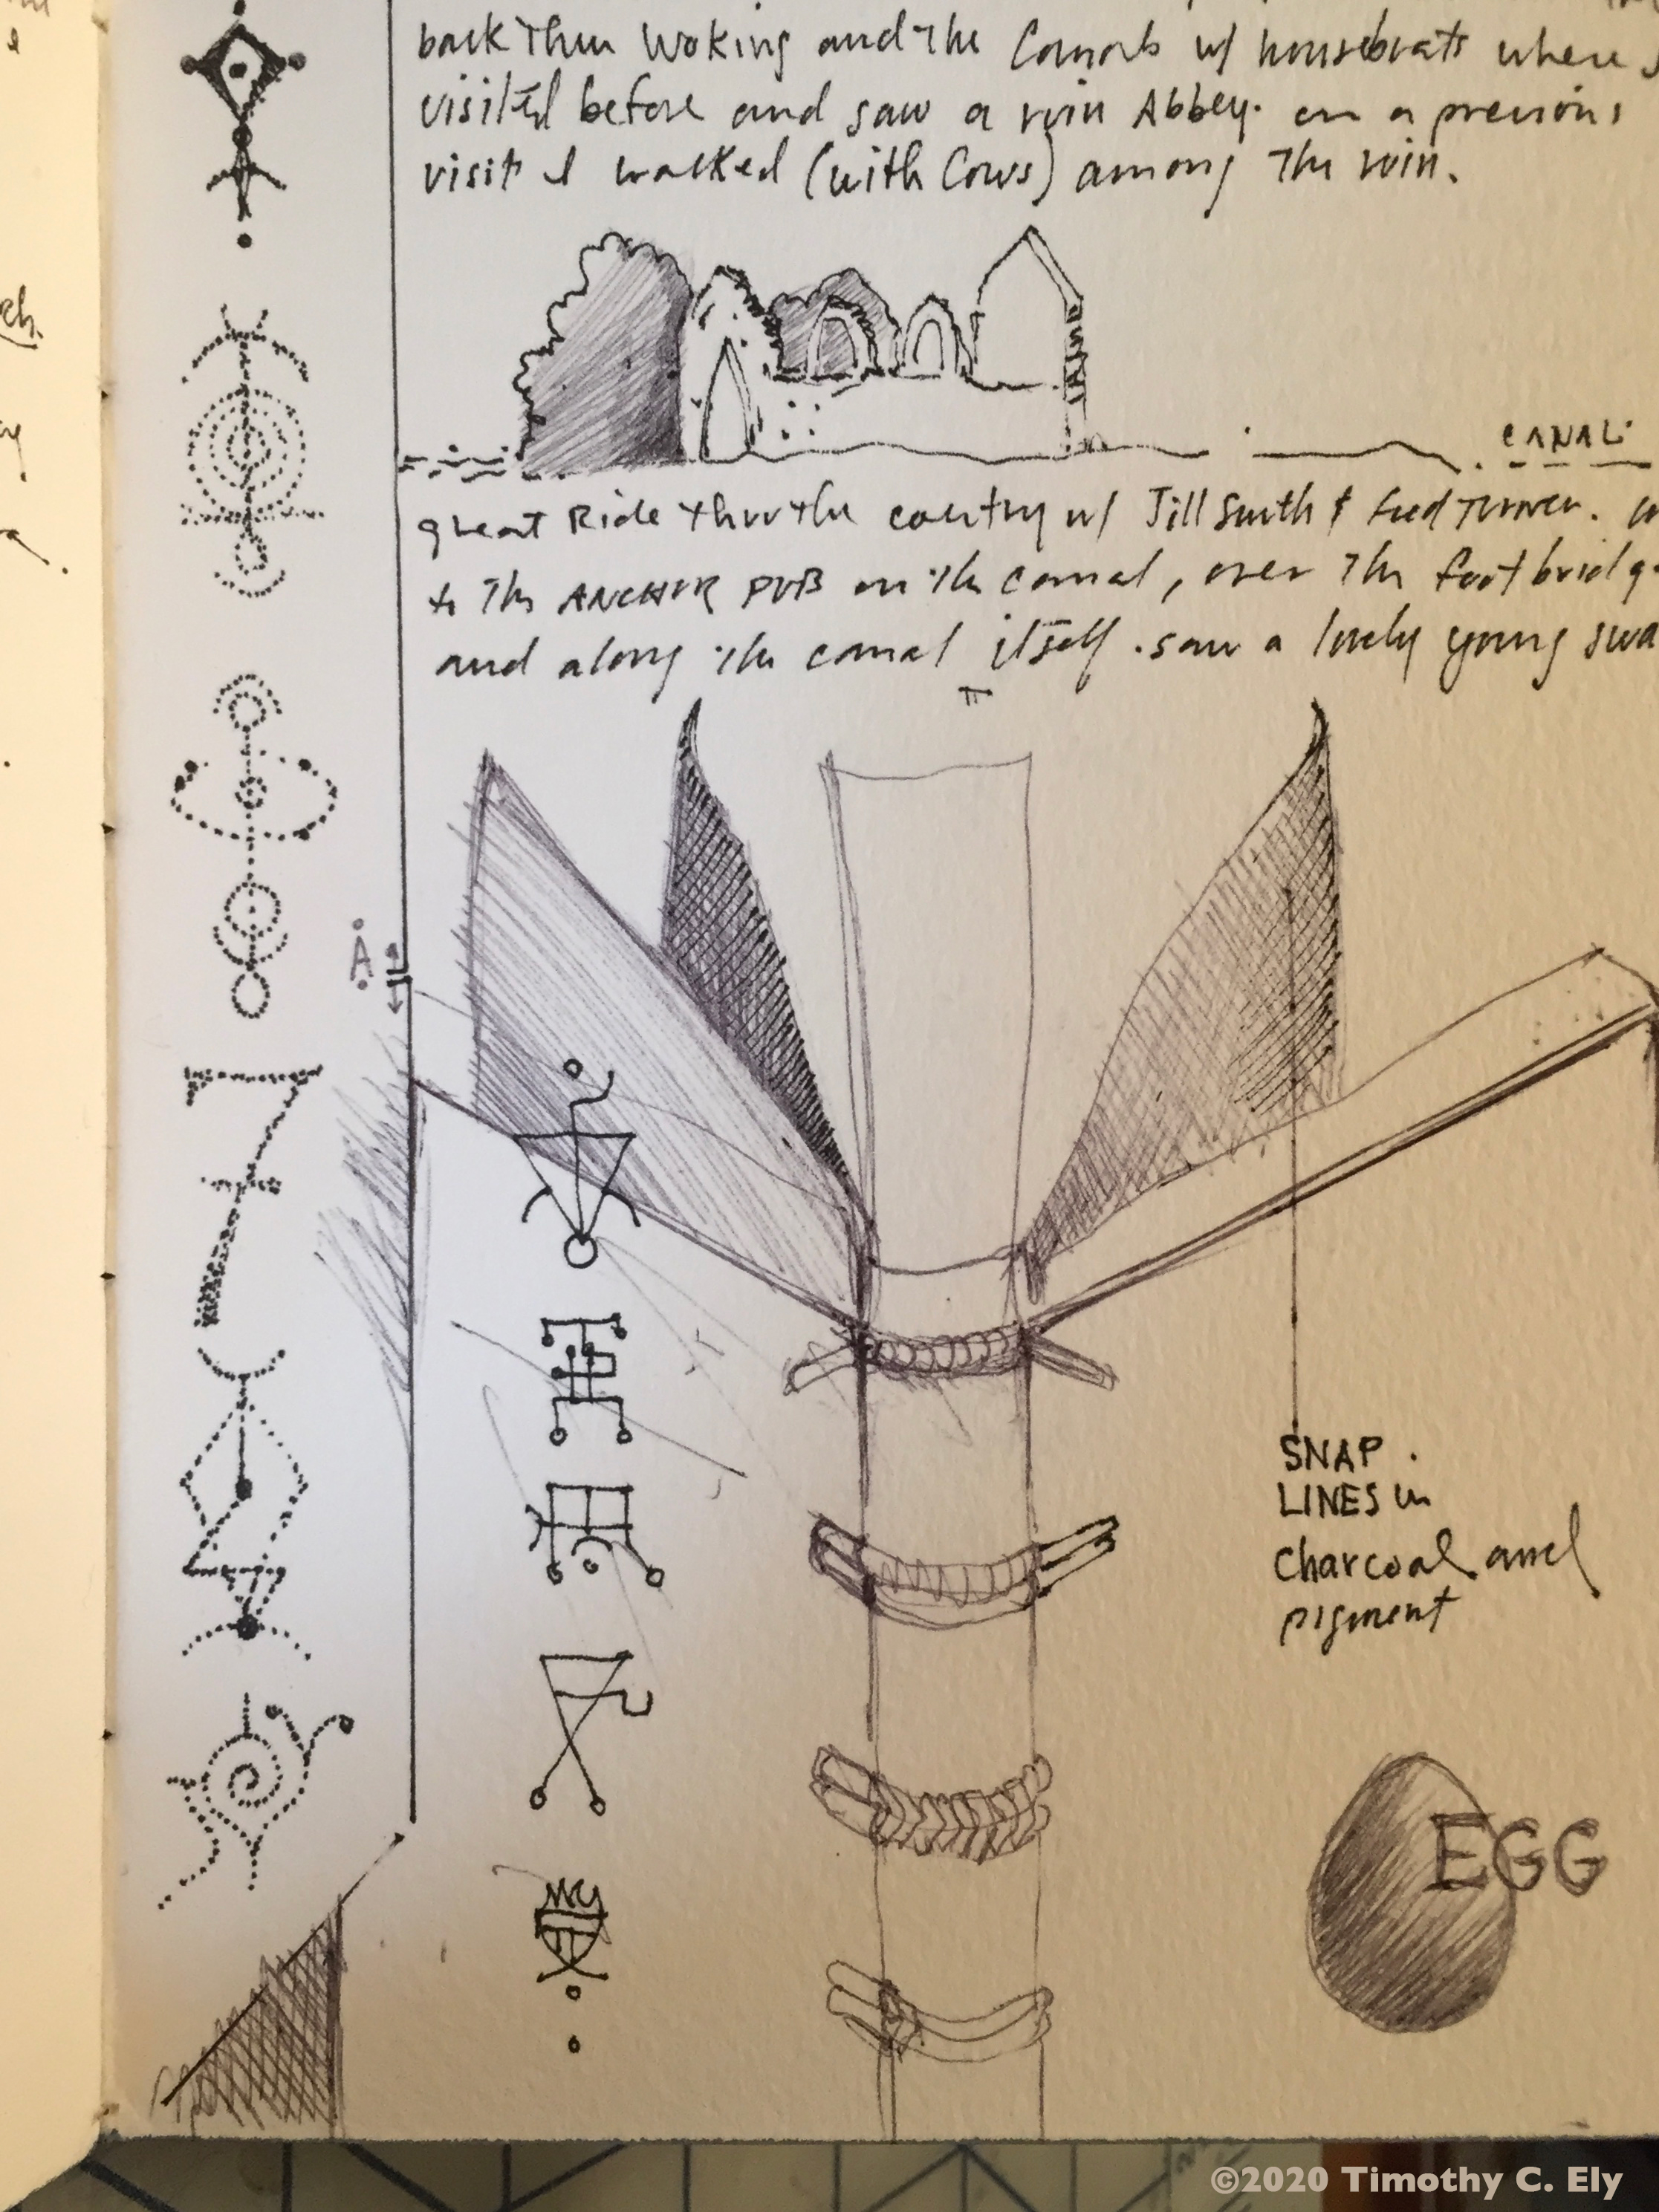 back thru Woking and the Canals w/ houseboats where I
visited before and saw a ruin Abbey. on a previous
visit I walked (with Cows) among the ruin.
CANAL
great Ride thru the country w/ Jill Smith & Fred Turner.
to the ANCHOR PUB on the canal, over the footbridg
and along the canal itself. saw a lovely young swa
A
SNAP
LINES in
charcoal and
pigment
EGG
©2020 Timothy C. Ely